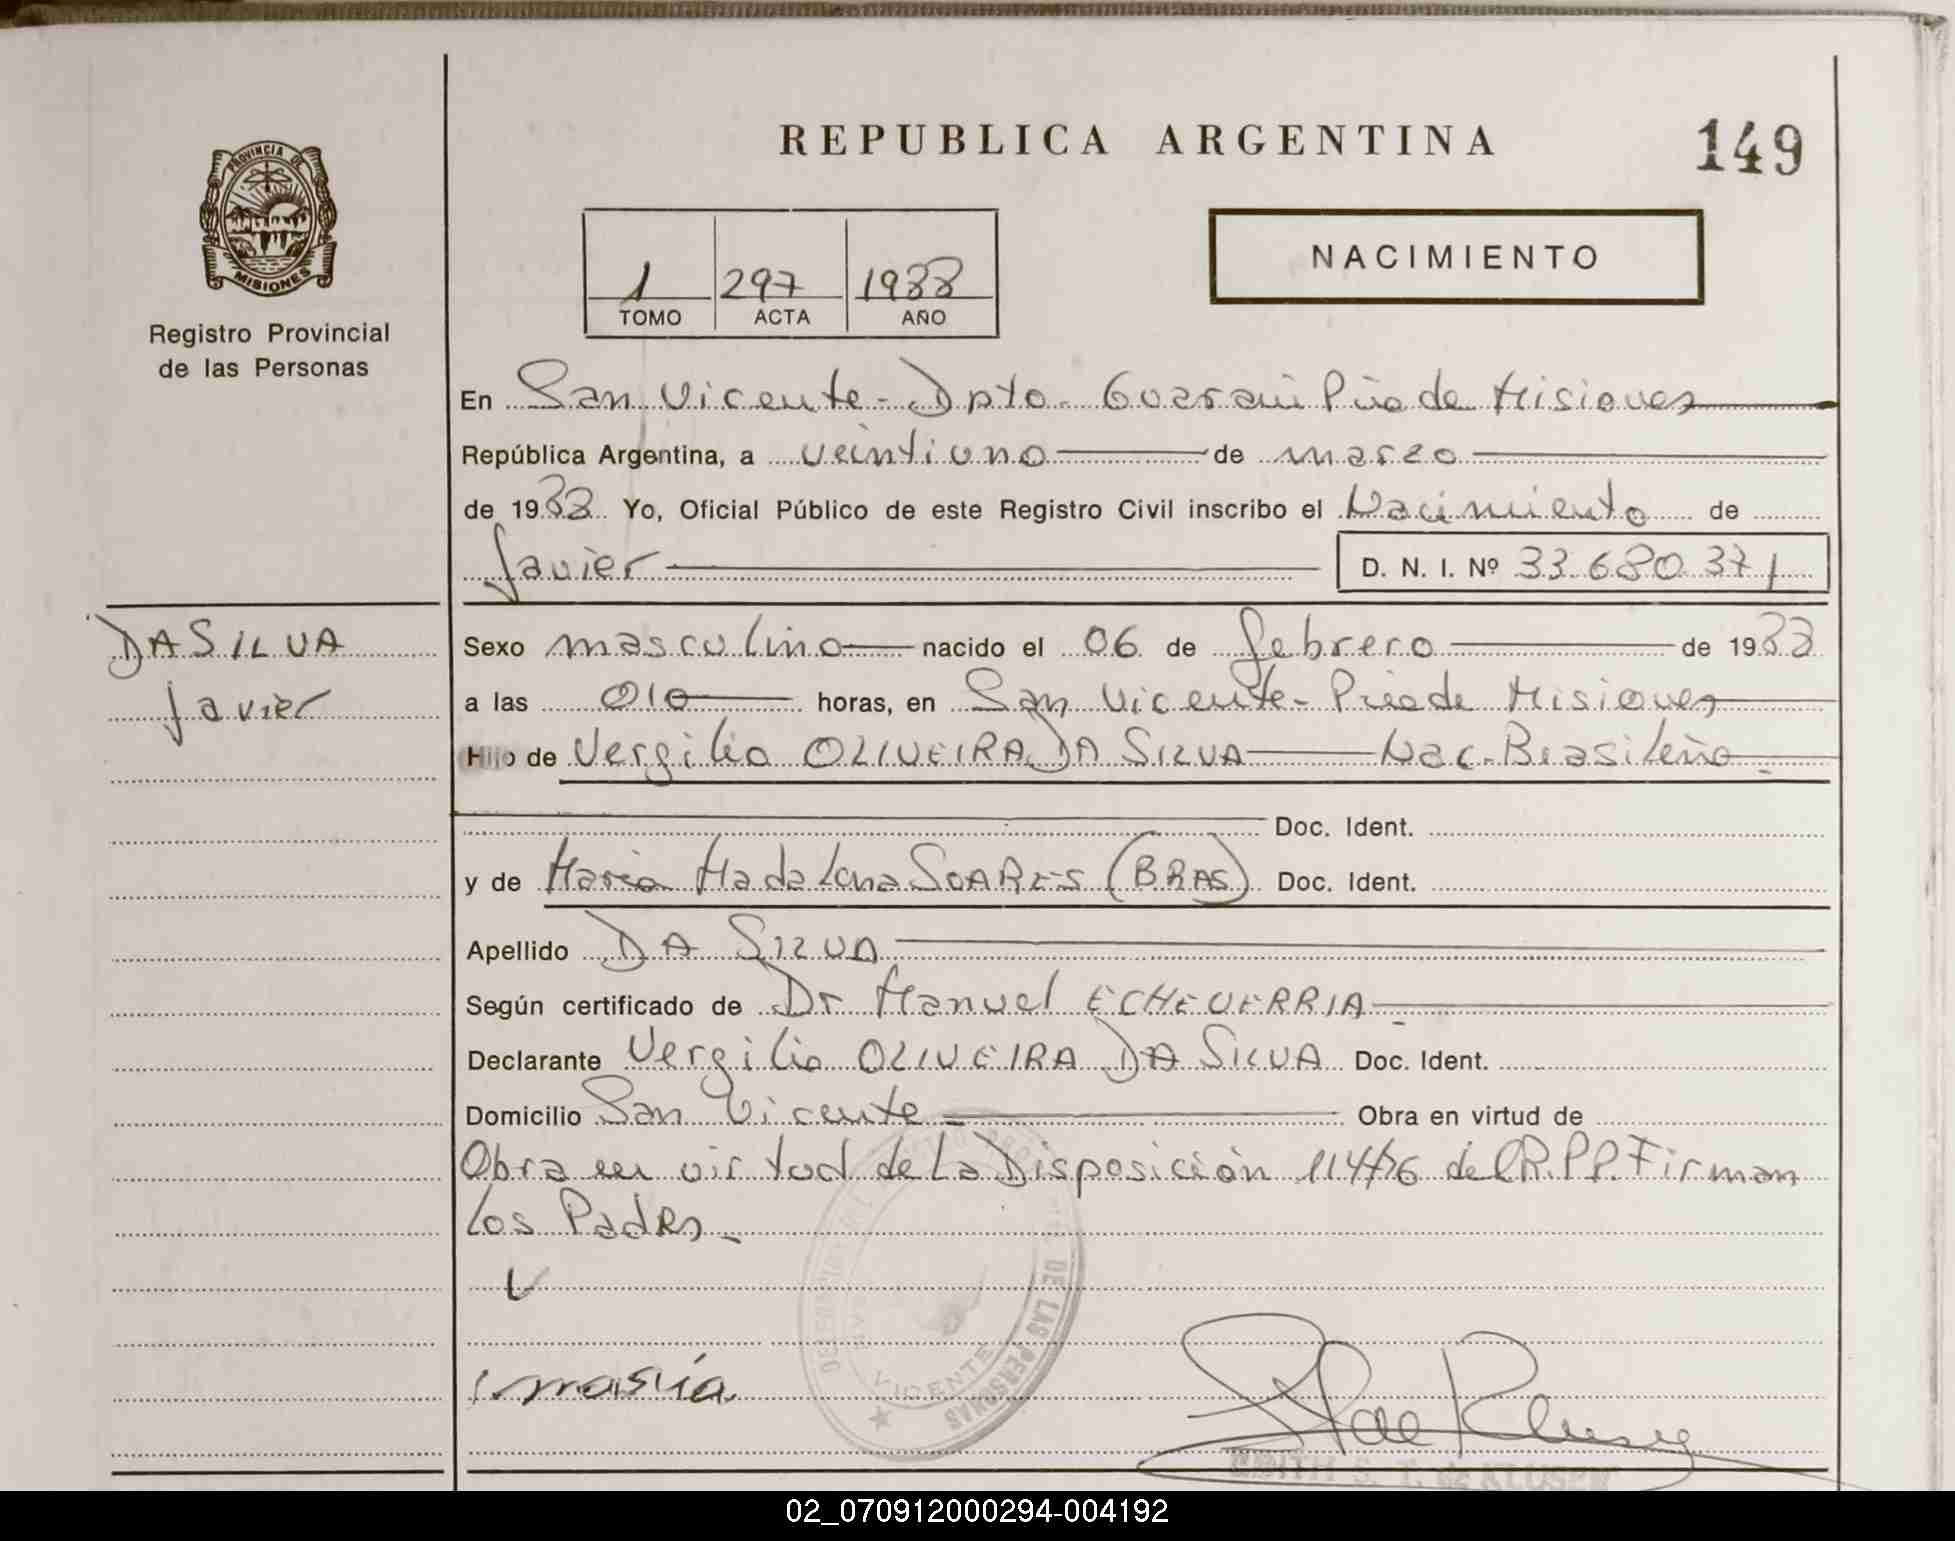 REPUBLICA ARGENTINA
149
PROVINCIA DE
MISIONES
Registro Provincial
de las Personas
1 297 1988
TOMO ACTA AÑO
NACIMIENTO
En San Vicente - Dpto. Guarani Pcia de Misiones
República Argentina, a veintiuno de marzo
de 1988 Yo, Oficial Público de este Registro Civil inscribo el Nacimiento de
Javier D. N. I. Nº 33.680.371
DA SILVA
Javier
Sexo masculino nacido el 06 de febrero de 1988
a las 010 horas, en San Vicente - Pcia de Misiones
Hijo de Vergilio OLIVEIRA DA SILVA Nac. Brasileño
Doc. Ident.
y de Maria Madalena SOARES (BRAS) Doc. Ident.
Apellido DA SILVA
Según certificado de Dr Manuel ECHEVERRIA
Declarante Vergilio OLIVEIRA DA SILVA Doc. Ident.
Domicilio San Vicente Obra en virtud de
Obra en virtud de la Disposición 114/76 del R.P.P. Firman
los Padres
DE LAS PERSONAS
VICENTE
02_070912000294-004192